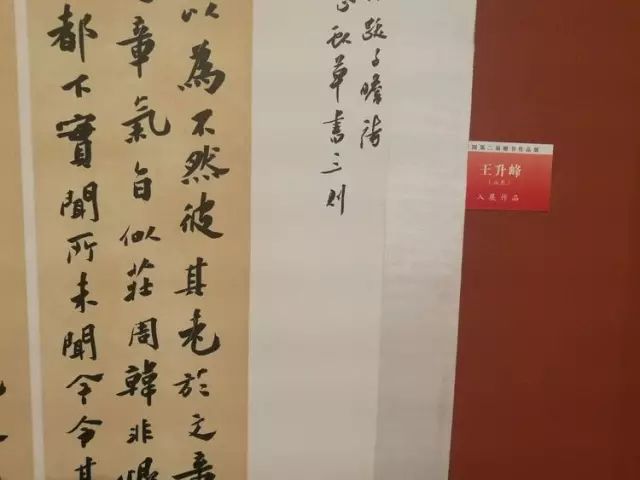 跋子瞻詩
秋草書三則
以為不然彼其老於文章
章氣自似莊周韓非恨
都下實聞所未聞令令其
國第二屆書作品展
王升峰
(山東)
入展作品